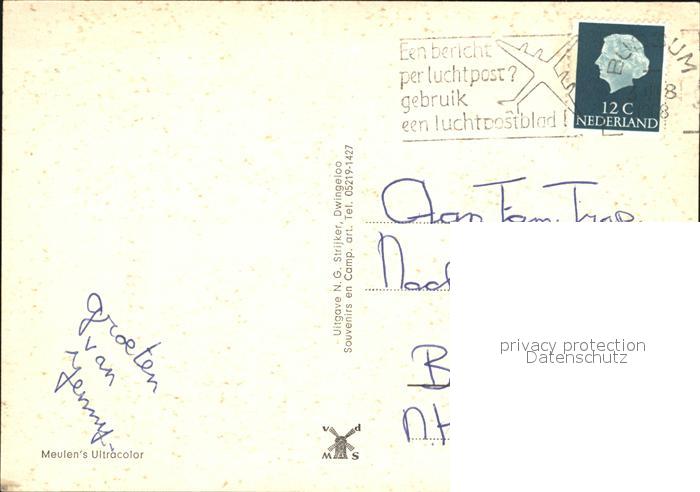 Een bericht
per luchtpost?
gebruik
een luchtpostblad!
BUSSUM
8
8
12 C
NEDERLAND
Uitgave N. G. Strijker, Dwingeloo
Souvenirs en Camp. art. Tel. 05219-1427
Aan Fam. Trap
B
N.H
groeten
van
Yenny.
v d
M S
Meulen's Ultracolor
privacy protection
Datenschutz